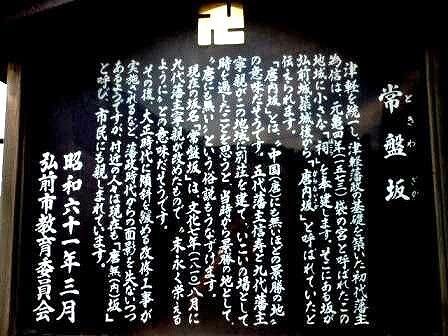 常盤坂
ときわざか
津軽を統一し、津軽藩政の基礎を築いた初代藩主
為信は、元亀四年(一五七三)袋の宮と呼ばれたこの
地域に小さな「祠」を奉建します。そこにある坂が
弘前城築城後から「唐内坂」と呼ばれていたと
伝えられます。
「唐内坂」とは、“中国(唐)にも無いほどの景勝の地”
の意味だそうです。五代藩主信寿と九代藩主
寧親がこの地域に別荘を建て、いこいの場として
時を過したことを思うと、当時が景勝の地として、
“唐にも無い”という俗説もうなずけます。
現在の坂名「常盤坂」は、文化七年(一八一〇)八月に
九代藩主寧親が改めたもので“末永く栄える
ように”との意味だそうです。
その後、大正時代に傾斜を緩める改修工事が
実施されるなど、藩政時代からの面影を失いつつ
あるようですが、付近の人々は現在も「唐無(内)坂」
と呼び、市民にも親しまれています。
昭和六十一年三月
弘前市教育委員会